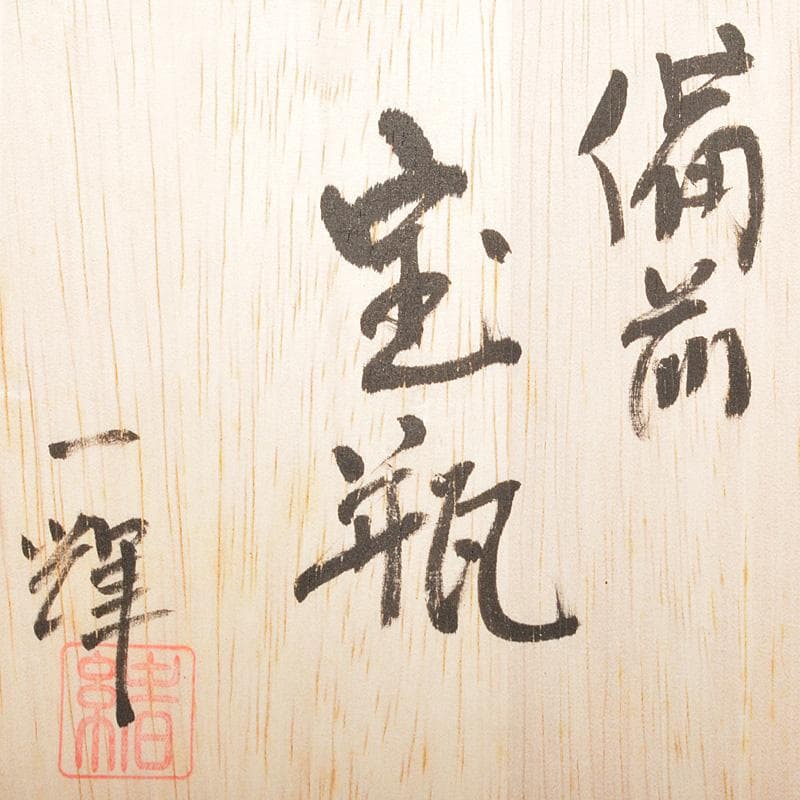 備前
宝瓶
一輝
緒